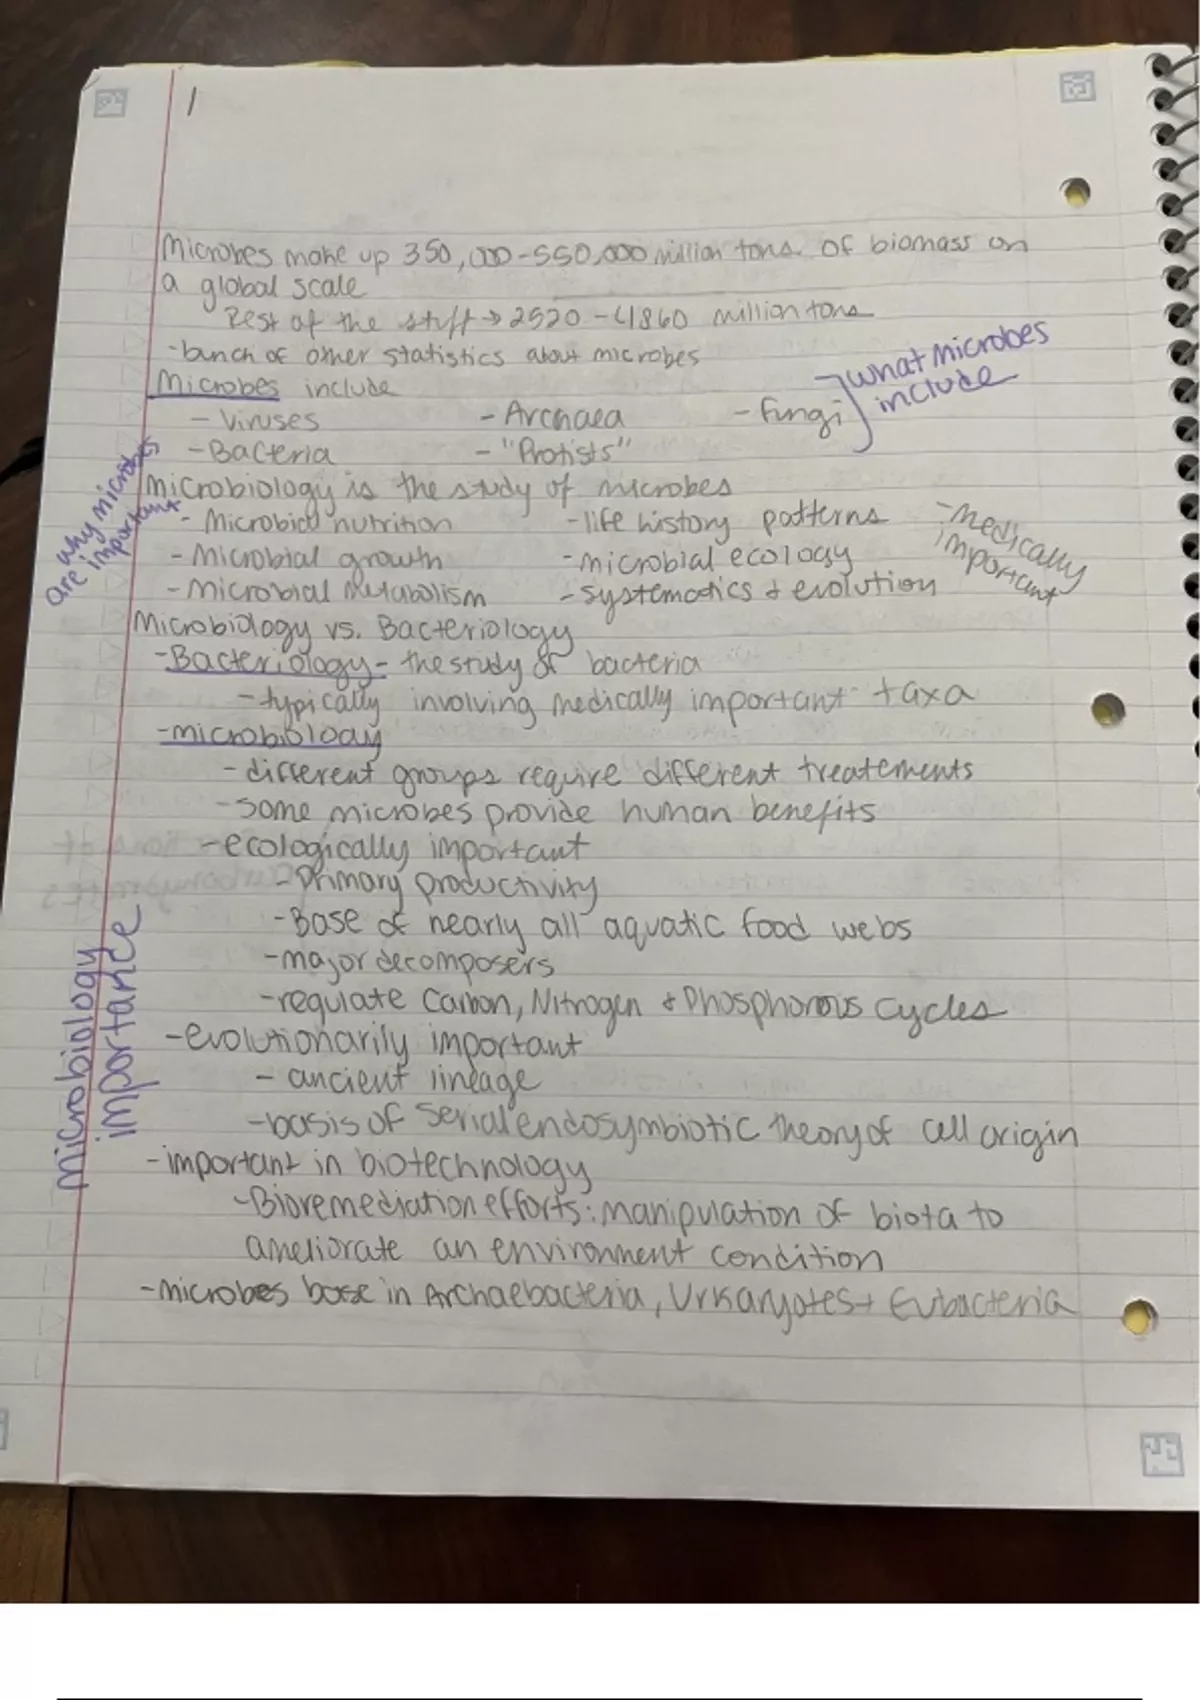 1
Microbes make up 350,000-550,000 million tons of biomass on
a global scale
Rest of the stuff → 2520-4860 million tons
-bunch of other statistics about microbes
Microbes include
- Viruses - Archaea - Fungi
- Bacteria - "Protists"
what microbes
include
Microbiology is the study of microbes
- Microbial nutrition - life history patterns
- Microbial growth - microbial ecology
- Microbial Metabolism - systematics & evolution
- medically
important
why microbes
are important
Microbiology vs. Bacteriology
- Bacteriology - the study of bacteria
- typically involving medically important taxa
- microbiology
- different groups require different treatements
- some microbes provide human benefits
- ecologically important
- Primary productivity
- Base of nearly all aquatic food webs
- major decomposers
- regulate Carbon, Nitrogen & Phosphorous cycles
- evolutionarily important
- ancient lineage
- basis of serial endosymbiotic theory of cell origin
- important in biotechnology
- Bioremediation efforts: manipulation of biota to
ameliorate an environment condition
- microbes base in Archaebacteria, Urkaryotes + Eubacteria
microbiology
importance